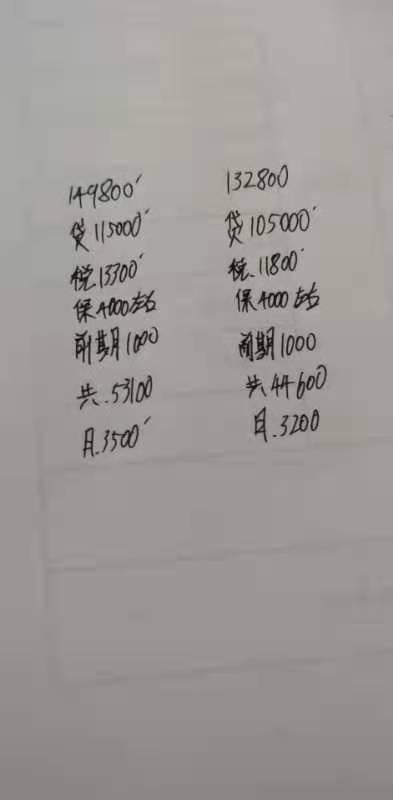 149800
贷115000
税.13300
保4000左右
前期1000
共.53100
月.3500
132800
贷105000
税.11800
保4000左右
前期1000
共44600
月.3200